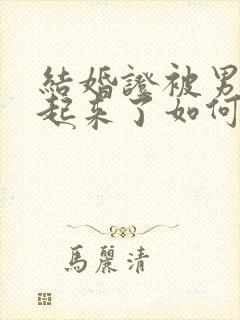 結婚證被男
起來了如何
馬麗清